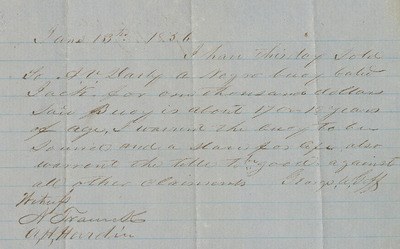 June 13th 1856
I have this day Sold
To A V Daily a Negro buoy Cald
Jack for one thousand dollars
Said Buoy is about 17 or 18 years
of age, I warent the buoy to be
Sound and a Slave for life also
warrent the title to be good against
all other claiments George
Witness
A
A H Hardin